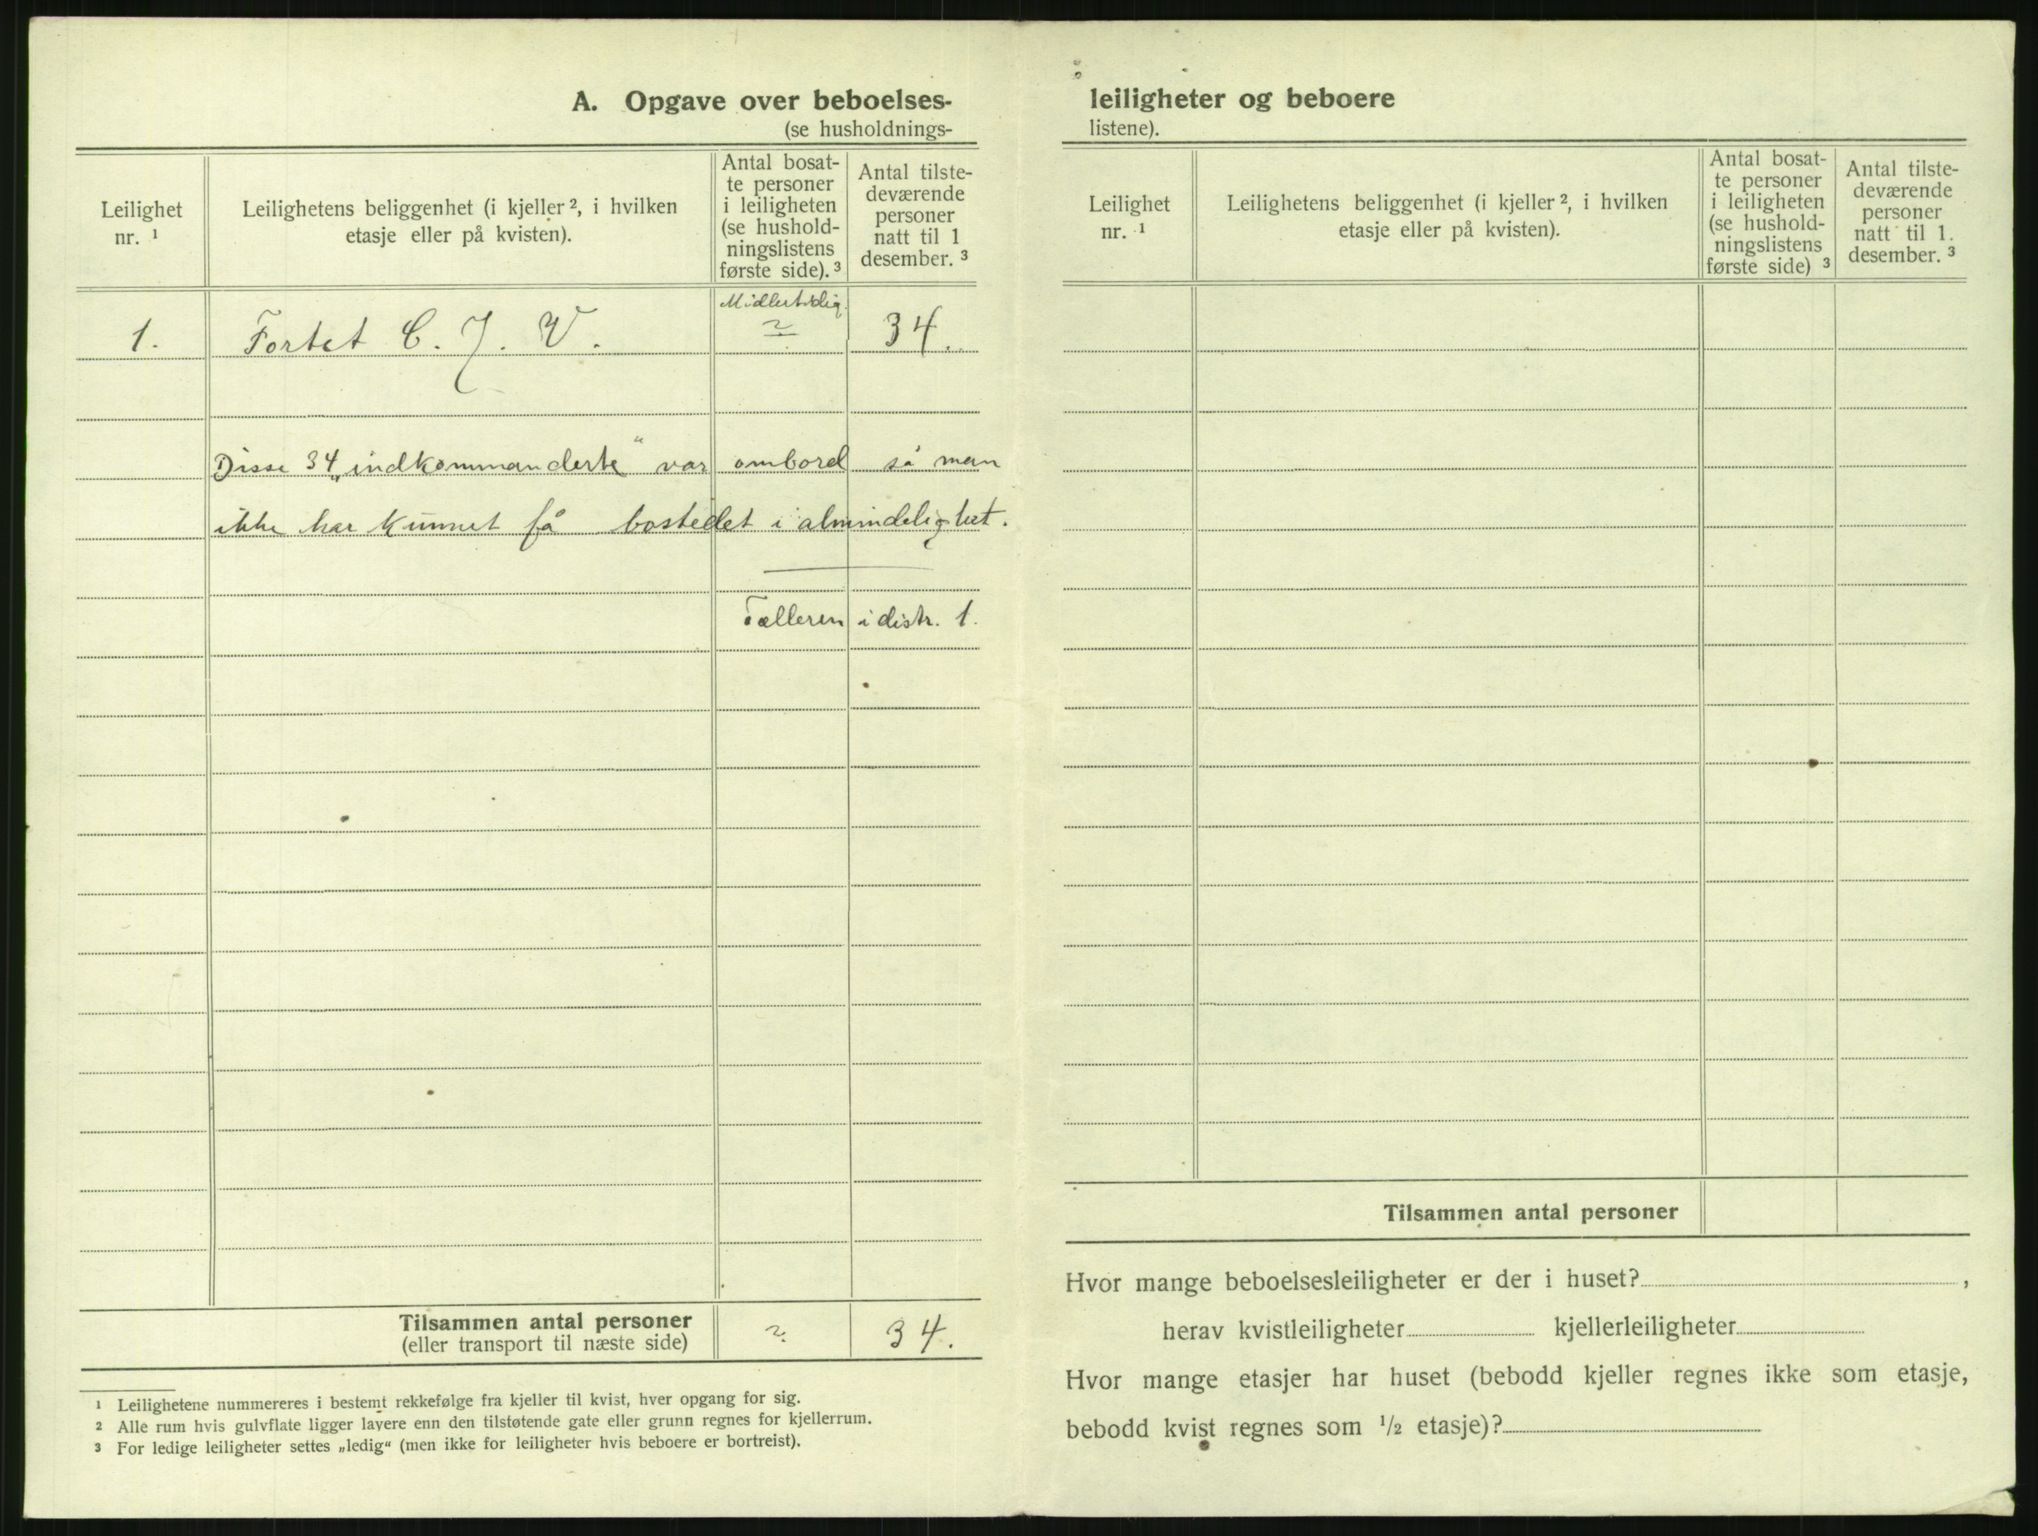 A. Opgave over beboelses-
(se husholdnings-
Leilighet nr. ¹
Leilighetens beliggenhet (i kjeller ², i hvilken
etasje eller på kvisten).
Antal bosat-
te personer
i leiligheten
(se hushold-
ningslistens
første side). ³
Antal tilste-
deværende
personer
natt til 1
desember. ³
Midlertidig
1. Fortet C. J. V. 2 34.
Disse 34 „indkommanderte" var ombord så man
ikke har kunnet få bostedet i almindelighet.
Tælleren i distr. 1.
Tilsammen antal personer 2. 34.
(eller transport til næste side)
¹ Leilighetene nummereres i bestemt rekkefølge fra kjeller til kvist, hver opgang for sig.
² Alle rum hvis gulvflate ligger lavere enn den tilstøtende gate eller grunn regnes for kjellerrum.
³ For ledige leiligheter settes „ledig" (men ikke for leiligheter hvis beboere er bortreist).
leiligheter og beboere
listene).
Leilighet
nr. ¹
Leilighetens beliggenhet (i kjeller ², i hvilken
etasje eller på kvisten).
Antal bosat-
te personer
i leiligheten
(se hushold-
ningslistens
første side) ³
Antal tilste-
deværende
personer
natt til 1.
desember. ³
Tilsammen antal personer
Hvor mange beboelsesleiligheter er der i huset? ,
herav kvistleiligheter kjellerleiligheter
Hvor mange etasjer har huset (bebodd kjeller regnes ikke som etasje,
bebodd kvist regnes som ½ etasje)?